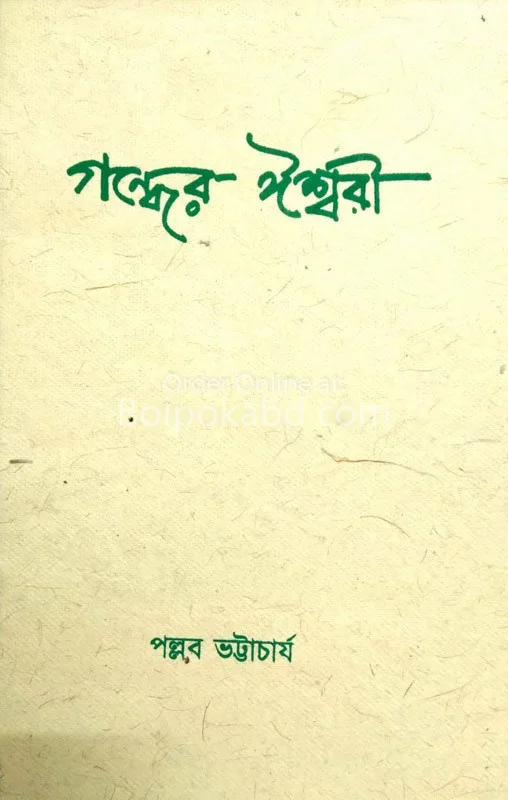 গন্ধের ঈশ্বরী
Order Online at:
Boipokabd.com
পল্লব ভট্টাচার্য